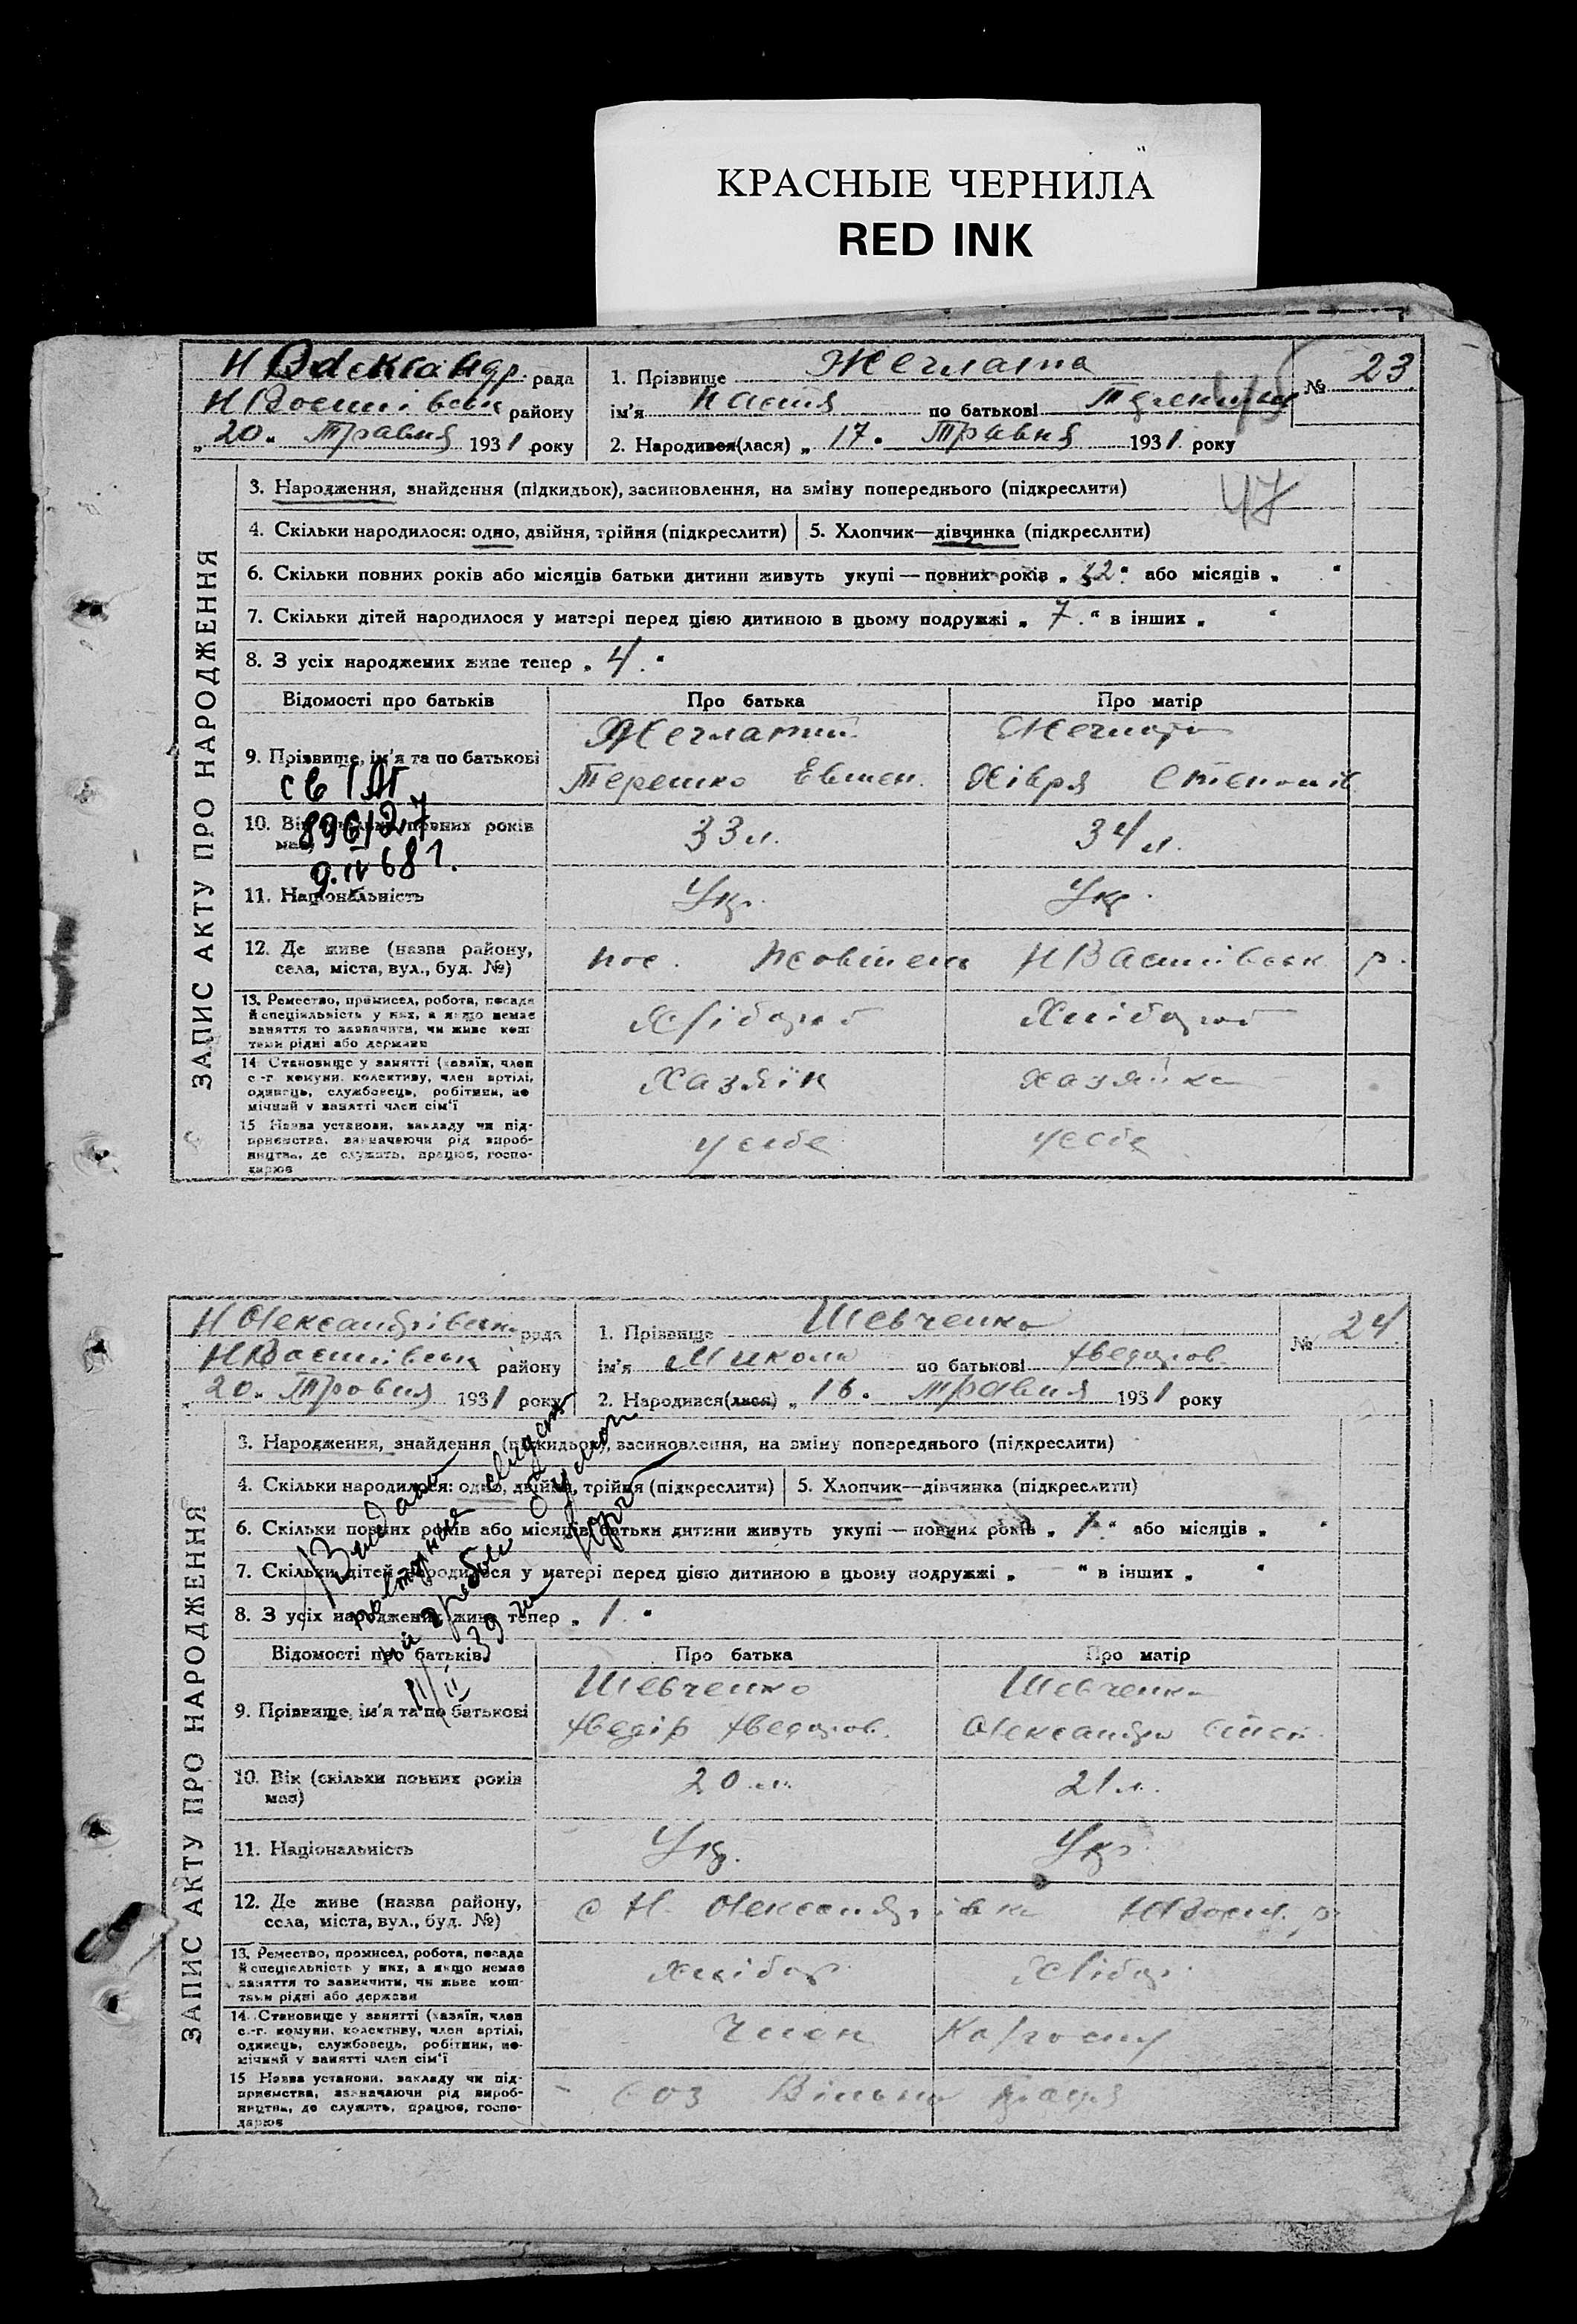 КРАСНЫЕ ЧЕРНИЛА
RED INK
Н Олександр. рада
району
„20“ Травня 1931 року
1. Прізвище
ім'я Настя по батькові
2. Народився(лася) „17“ Травня 1931 року
№ 23
ЗАПИС АКТУ ПРО НАРОДЖЕННЯ
3. Народження, знайдення (підкидьок), засиновлення, на зміну попереднього (підкреслити)
47
4. Скільки народилося: одно, двійня, трійня (підкреслити)
5. Хлопчик—дівчинка (підкреслити)
6. Скільки повних років або місяців батьки дитини живуть укупі — повних років „12“ або місяців „ “
7. Скільки дітей народилося у матері перед цією дитиною в цьому подружжі „7“ в інших „ “
8. З усіх народжених живе тепер „4“
Відомості про батьків
Про батька
Про матір
9. Прізвище, ім'я та по батькові
Терешко
Хівря
10. Вік повних років має
33 л.
34 л.
9.IV 68 г.
11. Національність
Укр.
Укр.
12. Де живе (назва району, села, міста, вул., буд. №)
пос. р.
13. Ремество, промисел, робота, посада й спеціяльність у них, а якщо немає заняття то зазначити, чи живе коштами рідні або держави
Хлібороб
Хлібороб
14. Становище у занятті (хазяїн, член с.-г. комуни, колективу, член артілі, одинець, службовець, робітник, помічний у занятті член сім'ї
Хазяїн
хазяйка
15 Назва установи, закладу чи підприємства, зазначаючи рід виробництва, де служить, працює, господарює
у себе
у себе
Н Олександрівськ рада
району
„20“ Травня 1931 року
1. Прізвище Шевченко
ім'я Микола по батькові Хведоров
2. Народився(лася) „16“ Травня 1931 року
№ 24
ЗАПИС АКТУ ПРО НАРОДЖЕННЯ
3. Народження, знайдення (підкидьок), засиновлення, на зміну попереднього (підкреслити)
4. Скільки народилося: одно, двійня, трійня (підкреслити)
5. Хлопчик—дівчинка (підкреслити)
6. Скільки повних років або місяців батьки дитини живуть укупі — повних років „1“ або місяців „ “
7. Скільки дітей народилося у матері перед цією дитиною в цьому подружжі „ “ в інших „ “
8. З усіх народжених живе тепер „1“
Відомості про батьків
Про батька
Про матір
9. Прізвище, ім'я та по батькові
Шевченко
Хведір Хведоров.
Шевченко
Олександра
10. Вік (скільки повних років має)
20 л.
21 л.
11. Національність
Укр.
Укр.
12. Де живе (назва району, села, міста, вул., буд. №)
с Н. Олександрівка р.
13. Ремество, промисел, робота, посада й спеціяльність у них, а якщо немає заняття то зазначити, чи живе коштами рідні або держави
хлібор
Хлібор
14. Становище у занятті (хазяїн, член с.-г. комуни, колективу, член артілі, одинець, службовець, робітник, помічний у занятті член сім'ї
Член Колгоспу
15 Назва установи, закладу чи підприємства, зазначаючи рід виробництва, де служить, працює, господарює
Соз Вільна праця